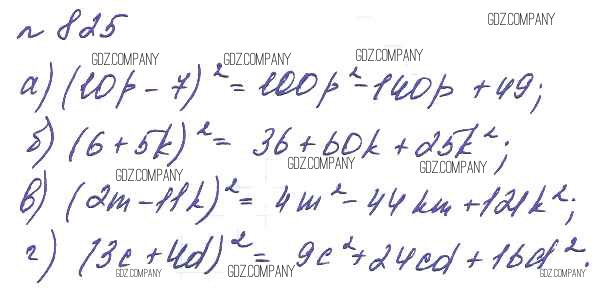 № 825
GDZ.COMPANY
GDZ.COMPANY GDZ.COMPANY GDZ.COMPANY
а) (10p - 7)² = 100p² - 140p + 49;
б) (6 + 5k)² = 36 + 60k + 25k²;
GDZ.COMPANY GDZ.COMPANY GDZ.COMPANY
в) (2m - 11k)² = 4m² - 44km + 121k²;
г) (3c + 4d)² = 9c² + 24cd + 16d².
GDZ.COMPANY GDZ.COMPANY GDZ.COMPANY